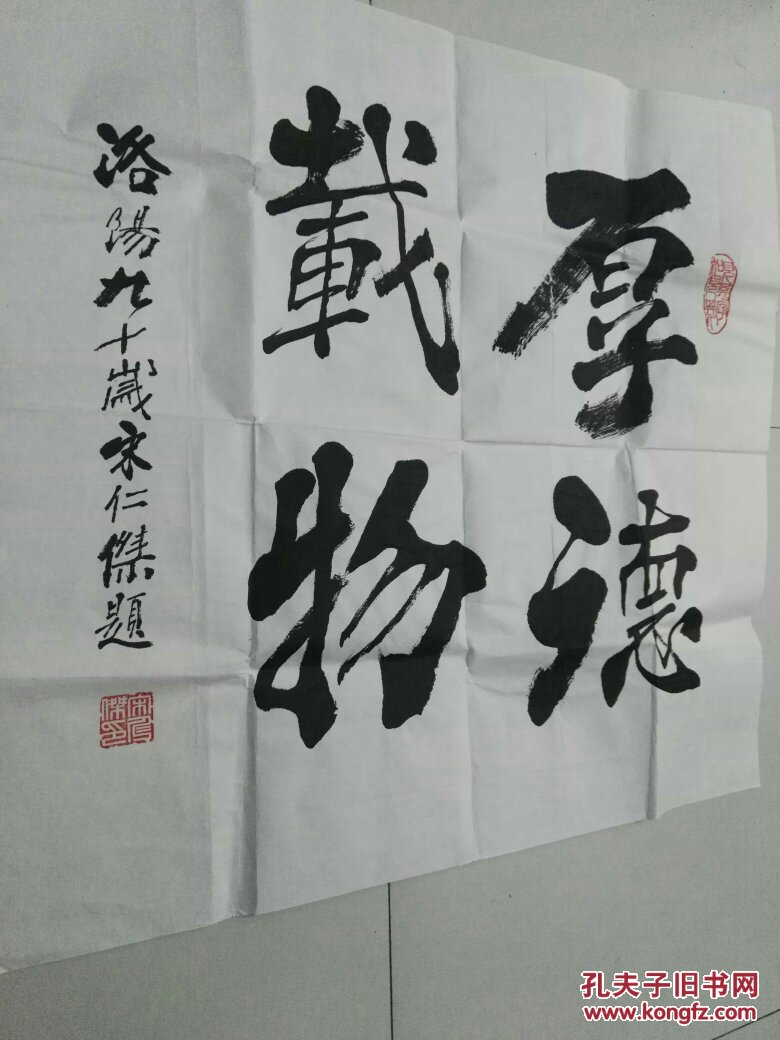 厚德
載物
洛陽九十歲宋仁傑題
孔夫子旧书网
www.kongfz.com